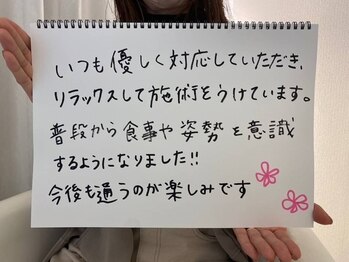 いつも優しく対応していただき、
リラックスして施術をうけています。
普段から食事や姿勢を意識
するようになりました!!
今後も通うのが楽しみです